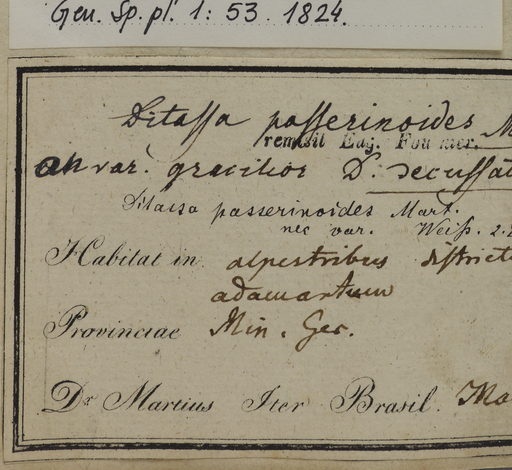 Gen. Sp. pl. 1: 53. 1824.
Ditassa passerinoides M
remisit Eug. Fournier.
an var. gracilior D. decussat
Ditassa passerinoides Mart.
nec var. Weiss. 2.
Habitat in alpestribus districtu
adamantum
Provinciae Min. Ger.
Dr Martius Iter Brasil. Ma